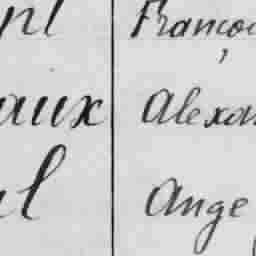 Franço
aux Alexan
l Ange